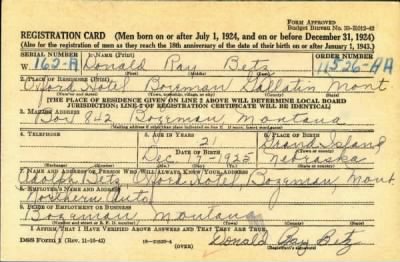 FORM APPROVED
Budget Bureau No. 33-R012-42
REGISTRATION CARD (Men born on or after July 1, 1924, and on or before December 31, 1924)
(Also for the registration of men as they reach the 18th anniversary of the date of their birth on or after January 1, 1943.)
SERIAL NUMBER 1. NAME (Print) ORDER NUMBER
W 162-A Donald Ray Betz 11526-A
(First) (Middle) (Last)
2. PLACE OF RESIDENCE (Print)
Hotel Bozeman Gallatin Mont
[THE PLACE OF RESIDENCE GIVEN ON LINE 2 ABOVE WILL DETERMINE LOCAL BOARD
JURISDICTION; LINE 2 OF REGISTRATION CERTIFICATE WILL BE IDENTICAL]
3. MAILING ADDRESS
Box 842 Bozeman Montana
4. TELEPHONE 5. AGE IN YEARS 6. PLACE OF BIRTH
21 Grand Island
DATE OF BIRTH
Dec 9-1925 Nebraska
7. NAME AND ADDRESS OF PERSON WHO WILL ALWAYS KNOW YOUR ADDRESS
Betz Hotel, Bozeman, Mont.
8. EMPLOYER'S NAME AND ADDRESS
Northern Auto
9. PLACE OF EMPLOYMENT OR BUSINESS
Bozeman Montana
I AFFIRM THAT I HAVE VERIFIED ABOVE ANSWERS AND THAT THEY ARE TRUE.
DSS Form 1 Donald Ray Betz